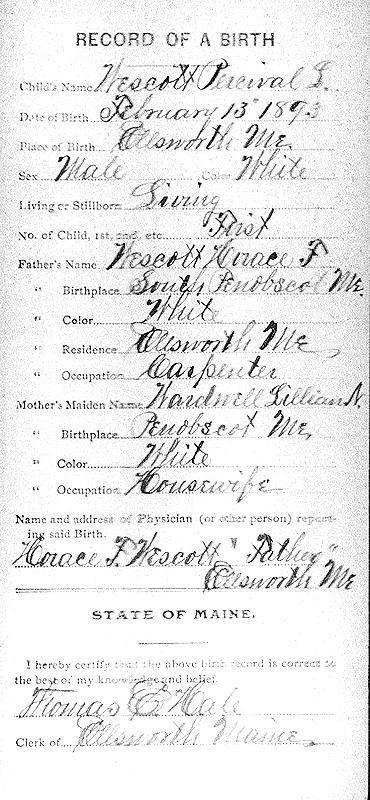 RECORD OF A BIRTH
Child's Name Wescott Percival L.
Date of Birth February 13" 1893
Place of Birth Ellsworth Me.
Sex Male Color White
Living or Stillborn Living
No. of Child, 1st, 2nd, etc. First
Father's Name Wescott Horace F
" Birthplace South Penobscot Me.
" Color White
" Residence Ellsworth Me
" Occupation Carpenter
Mother's Maiden Name Wardwell Lillian N.
" Birthplace Penobscot Me.
" Color White
" Occupation Housewife
Name and address of Physician (or other person) report-
ing said Birth.
Horace F. Wescott "Father"
Ellsworth Me
STATE OF MAINE.
I hereby certify that the above birth record is correct to
the best of my knowledge and belief.
Thomas E Hale
Clerk of Ellsworth Maine